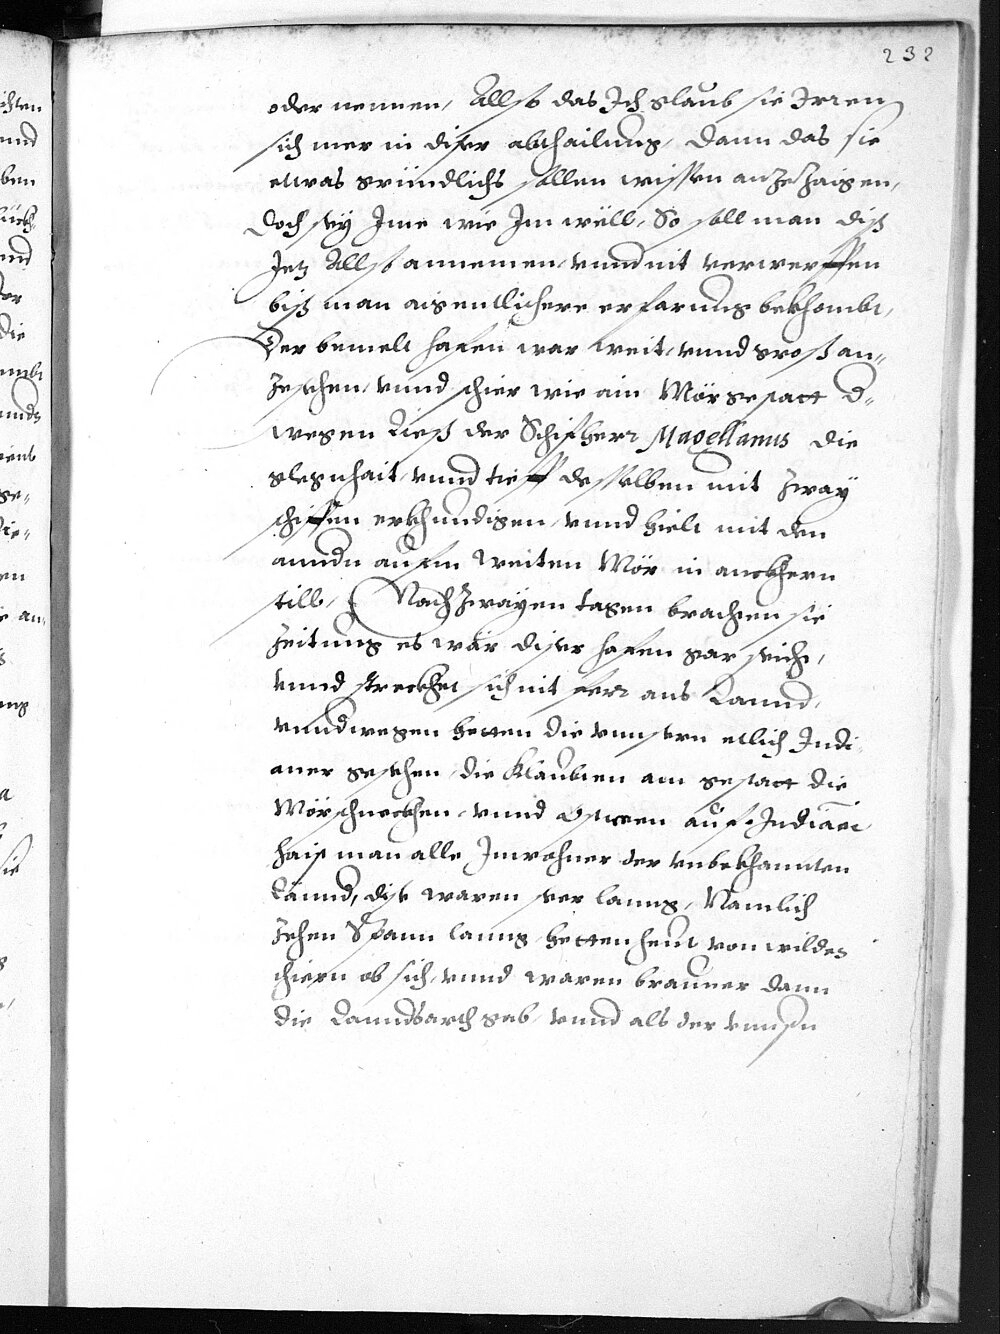 232
oder nennen, Allso das Ich glaub sie Irren
sich mer in diser abthailung, dann das sie
etwas gründlichs sollen wissen anzezaigen,
Doch sey Ime wie Im wëll, So soll man diß
Jetz Allso annemen, vnnd nit verwerffen
biß man aigentlichere erfarung bekhombt,
Der bemelt hafen war weit, vnnd groß an„
zesehen, vnnd schier wie ain Mörgestatt d„
wegen Ließ der Schifherr Magellanus die
glegnhait, vnnd tieff desselben mit zway
schiffen erkhundigen, vnnd hielt mit den
anndn auf dem weiten Mör in annckhern
still, Nach zwayen tagen brachten sie
zeitung es wär diser hafen gar seicht,
vnnd streckhet sich nit ferr ans Lannd,
vnndwegen hetten die vnnsern etlich Indi„
aner gesehen, die klaubten am gestatt die
Mörschneckhen, vnnd Ostreen auf, Indianer
haist man alle Inwohner der vnbekhannten
Lännd, dise waren seer lanng, Namlich
zehen Spann lanng, hetten heut von wilden
thiern ob sich, vnnd waren brauner dann
die Lanndsarth geb, vnnd als der vnnsern